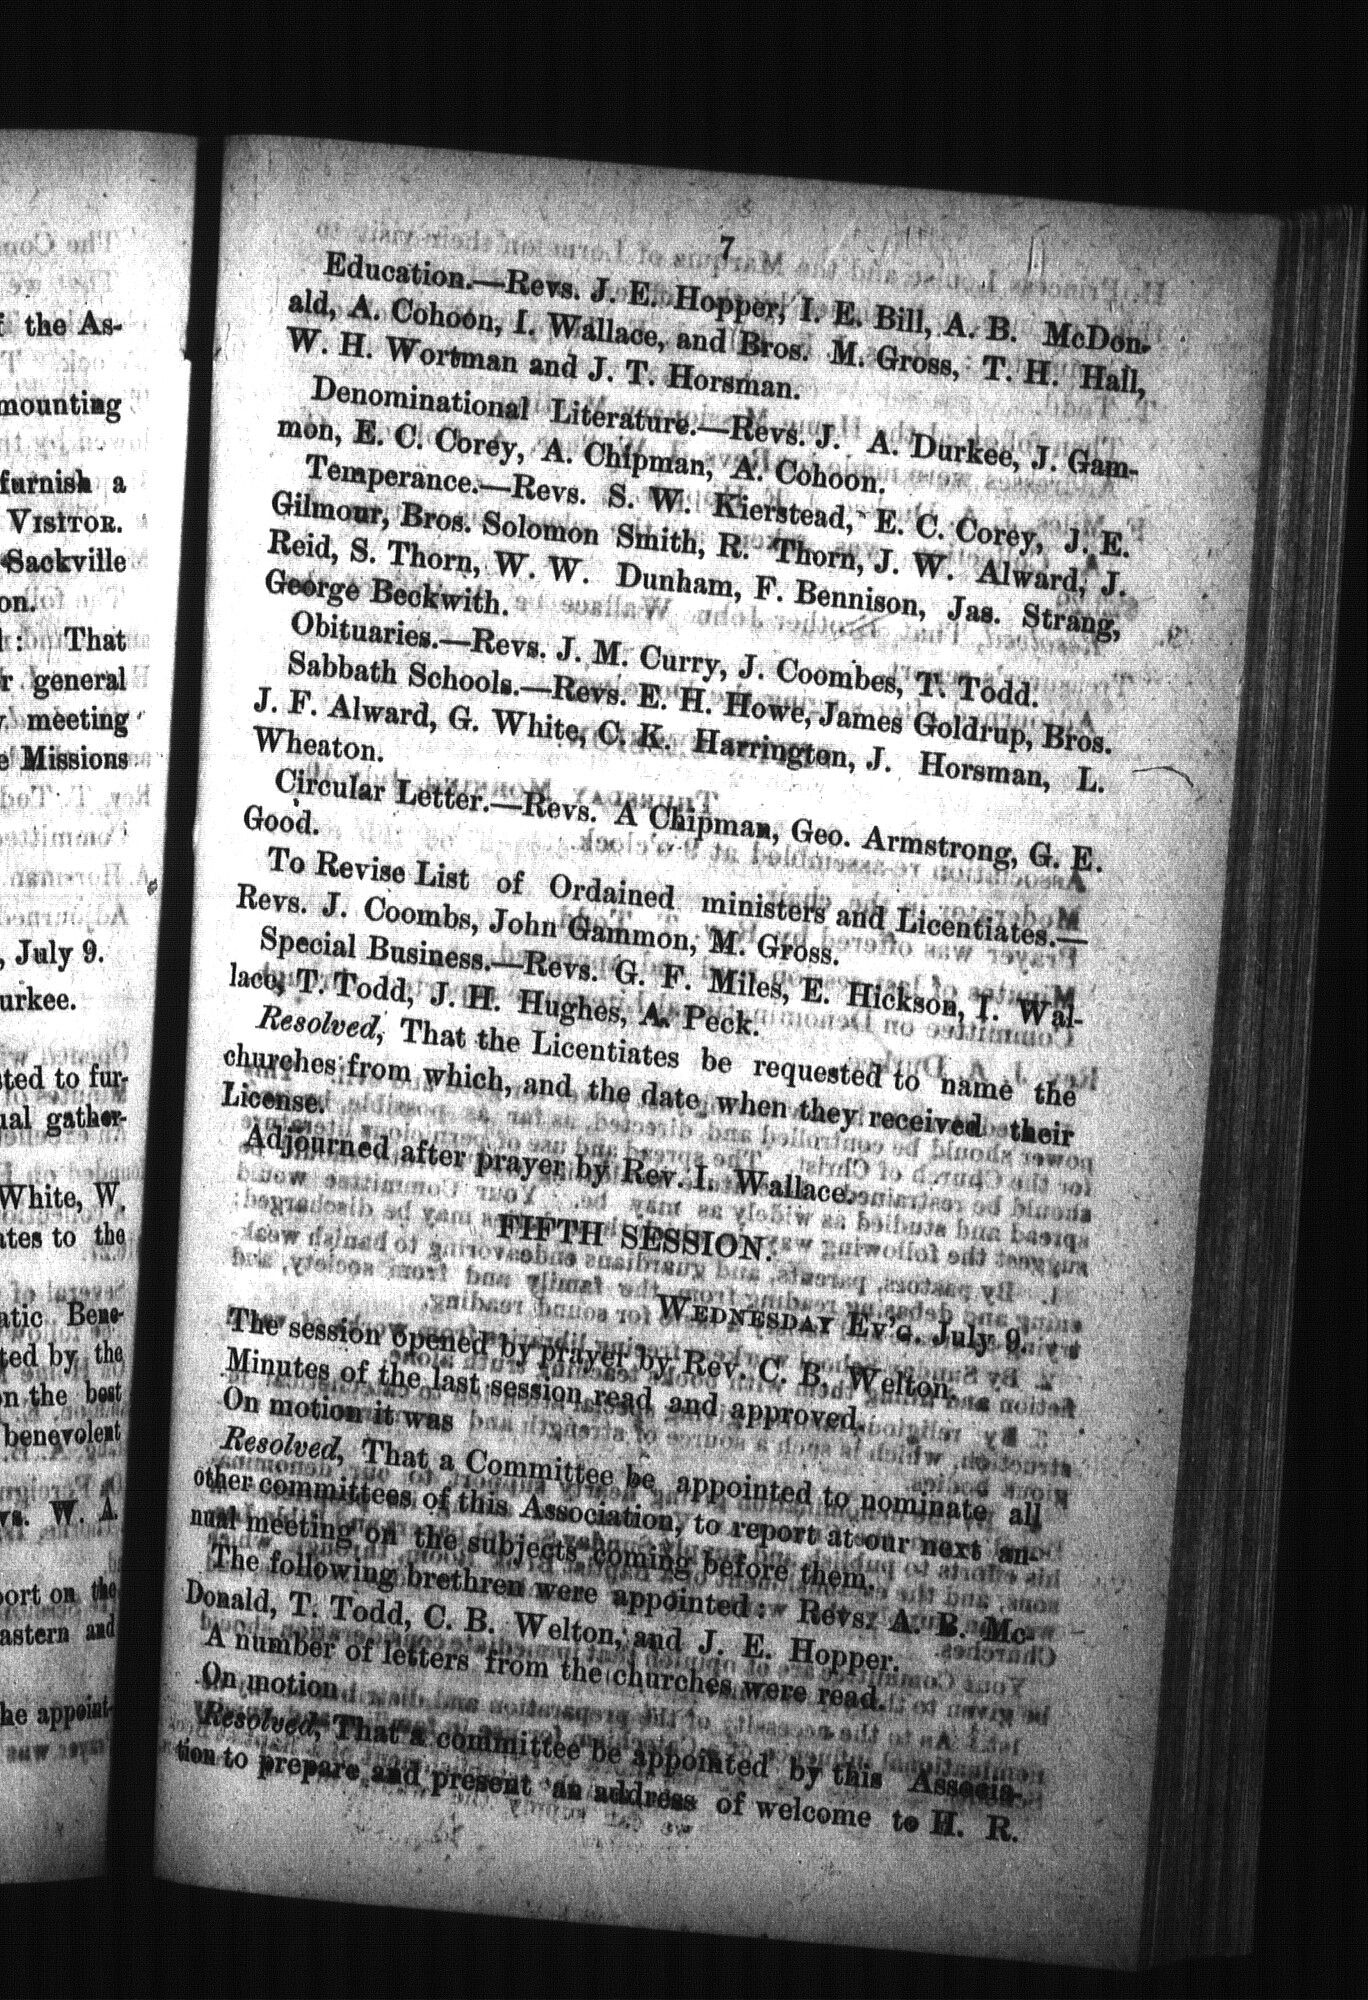 f the As-
mounting
furnish a
VISITOR.
Sackville
on.
l: That
r general
y meeting
e Missions
, July 9.
urkee.
sted to fur-
ual gather-
White, W.
ates to the
atic Bene-
ted by the
on the best
benevolent
vs. W. A.
port on the
astern and
he appoint-
7
Education.—Revs. J. E. Hopper, I. E. Bill, A. B. McDon-
ald, A. Cohoon, I. Wallace, and Bros. M. Gross, T. H. Hall,
W. H. Wortman and J. T. Horsman.
Denominational Literature.—Revs. J. A. Durkee, J. Gam-
mon, E. C. Corey, A. Chipman, A. Cohoon.
Temperance.—Revs. S. W. Kierstead, E. C. Corey, J. E.
Gilmour, Bros. Solomon Smith, R. Thorn, J. W. Alward, J.
Reid, S. Thorn, W. W. Dunham, F. Bennison, Jas. Strang,
George Beckwith.
Obituaries.—Revs. J. M. Curry, J. Coombes, T. Todd.
Sabbath Schools.—Revs. E. H. Howe, James Goldrup, Bros.
J. F. Alward, G. White, C. K. Harrington, J. Horsman, L.
Wheaton.
Circular Letter.—Revs. A Chipman, Geo. Armstrong, G. E.
Good.
To Revise List of Ordained ministers and Licentiates.—
Revs. J. Coombs, John Gammon, M. Gross.
Special Business.—Revs. G. F. Miles, E. Hickson, I. Wal-
lace, T. Todd, J. H. Hughes, A. Peck.
Resolved, That the Licentiates be requested to name the
churches from which, and the date when they received their
License.
Adjourned after prayer by Rev. I. Wallace.
FIFTH SESSION.
WEDNESDAY EV'G. July 9.
The session opened by prayer by Rev. C. B. Welton.
Minutes of the last session read and approved.
On motion it was
Resolved, That a Committee be appointed to nominate all
other committees of this Association, to report at our next an-
nual meeting on the subjects coming before them.
The following brethren were appointed: Revs. A. B. Mc-
Donald, T. Todd, C. B. Welton, and J. E. Hopper.
A number of letters from the churches were read.
On motion
Resolved, That a committee be appointed by this Associa-
tion to prepare and present an address of welcome to H. R.